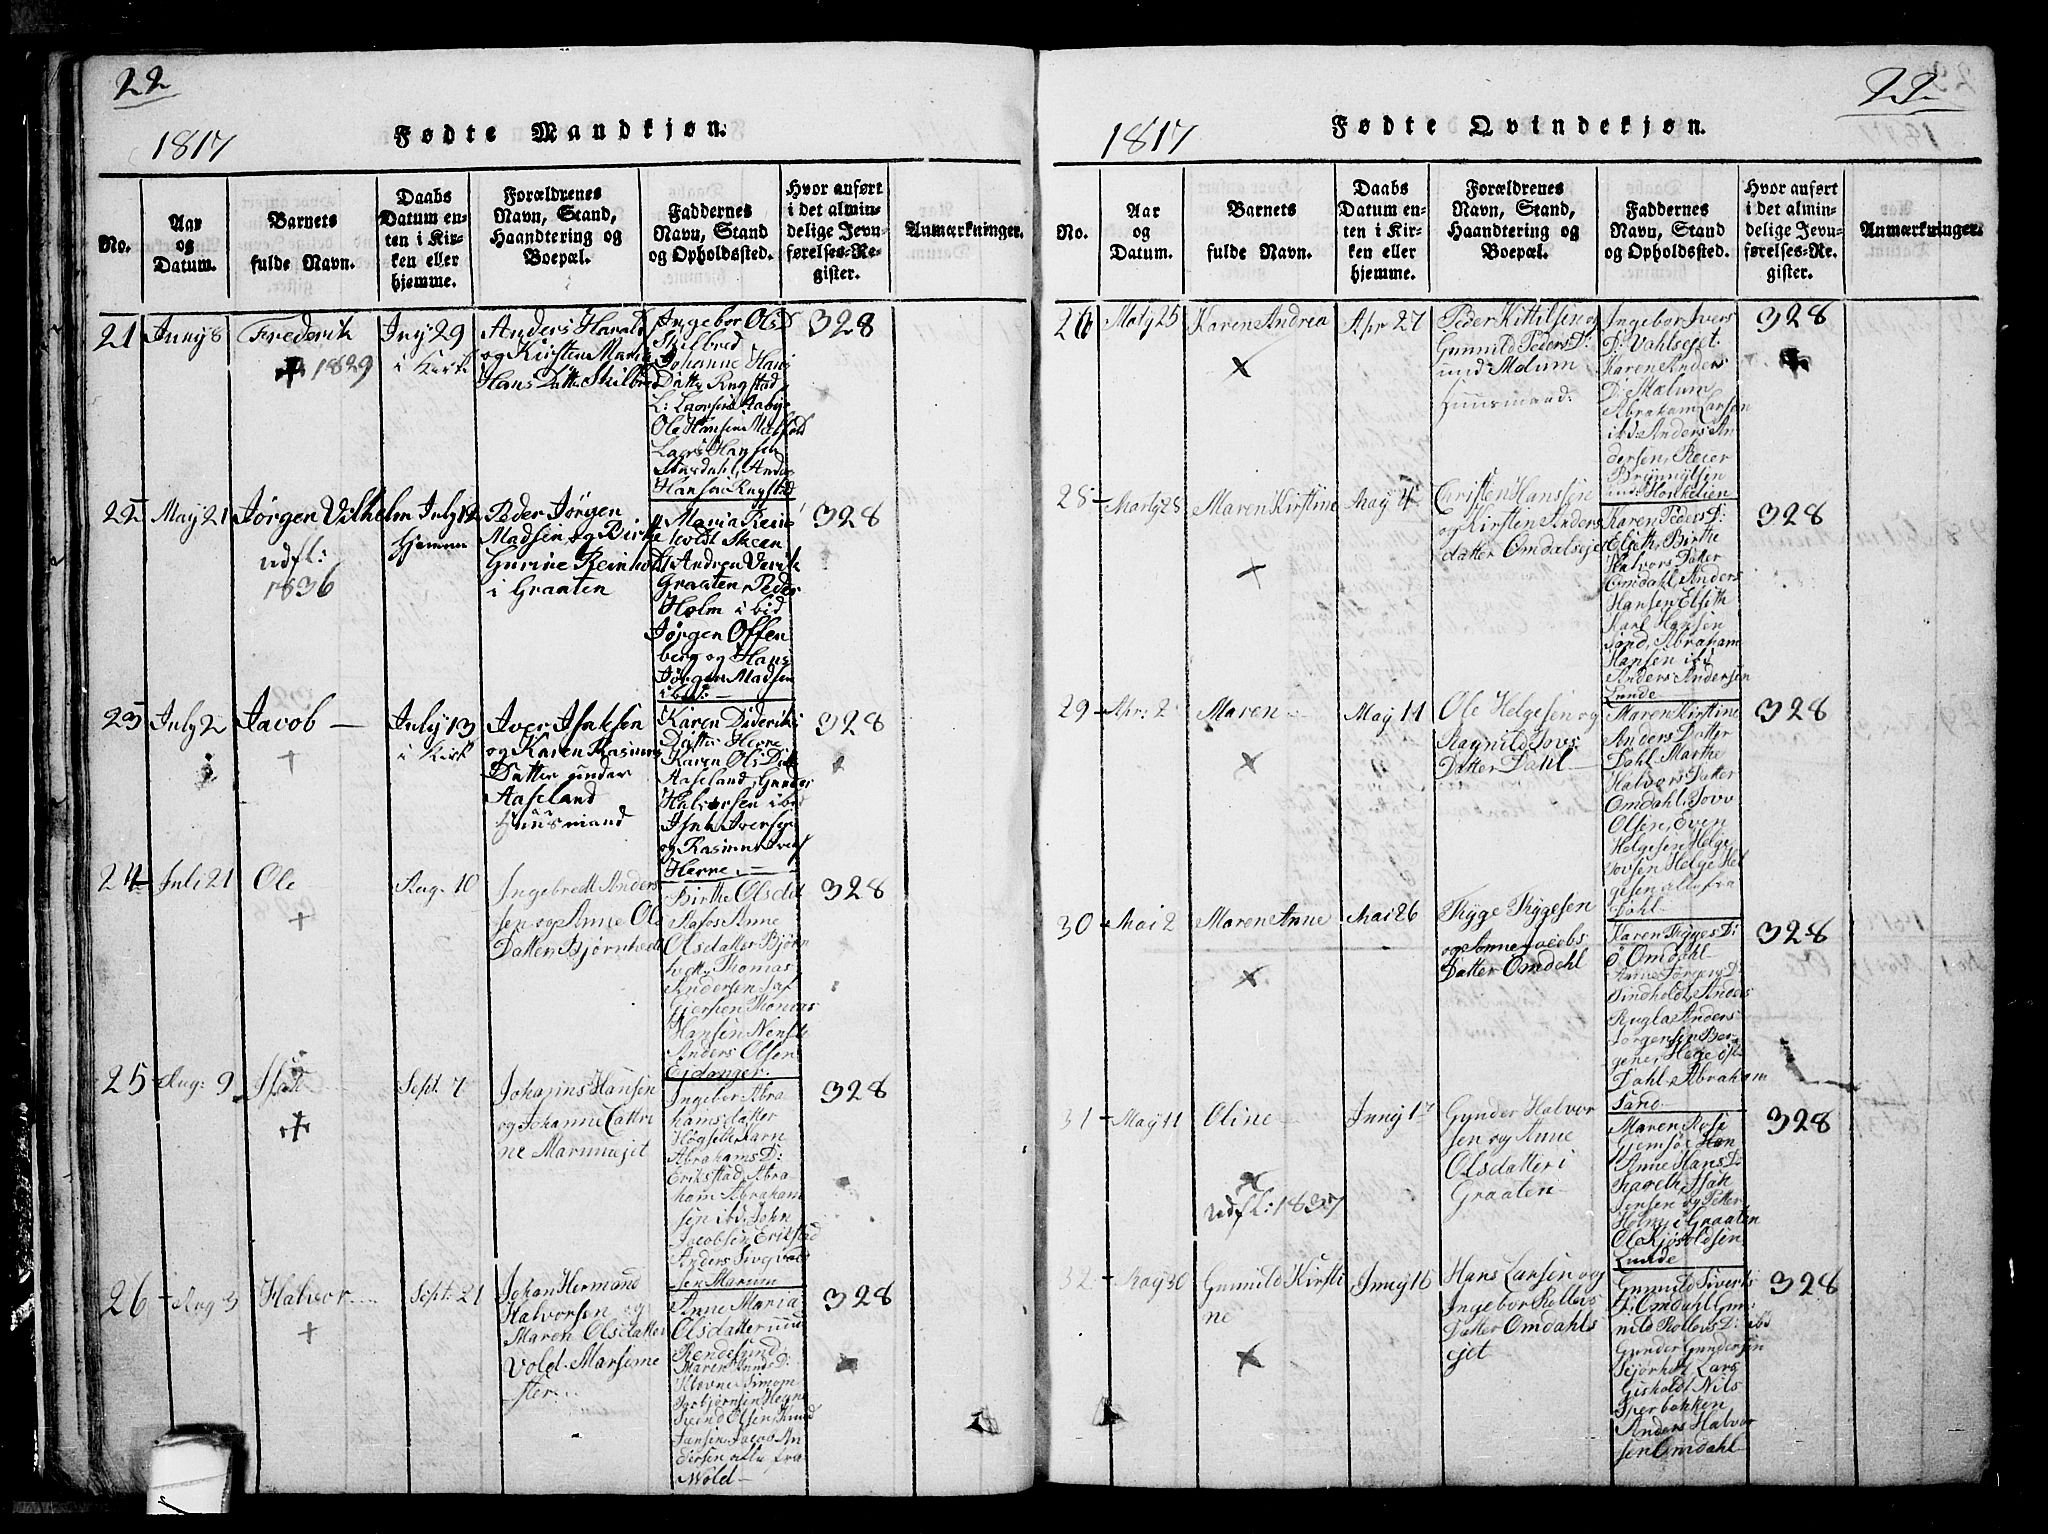 22
1817
Fødte Mandkjøn.
No.
Aar
og
Datum.
Barnets
fulde Navn.
Daabs
Datum en-
ten i Kir-
ken eller
hjemme.
Forældrenes
Navn, Stand,
Haandtering og
Boepæl.
Faddernes
Navn, Stand
og Opholdssted.
Hvor anført
i det almin-
delige Jevn-
førelses-Re-
gister.
Anmærkninger.
21
Juny 8
Frederik
1829
Juny 29
i Kirk
Anders Harals
og Kirsten Marie
Hans Datter Skilbred
Ingebor Ols D
Skilbred
Johanne Hans
Datter Rugstad
L: Laarsen Aaby
Ole Hansen
Laars Hansen
Hansen Rugstad
328
22
May 21
Jørgen Vilhelm
udfl:
1836
July 12
hjemme
Peder Jørgen
Madsen og Birthe
Gurine Reinholt
i Graaten
Maria Rein
holdt Skeen
Graaten, Peder
Holm ibid
Jørgen Offen
berg og Hans
Jørgen Madsen
ibid: —
328
23
July 2
Jacob —
July 13
i Kirk
Iver Isaksen
og Karen Rasmus
Datter under
Aaseland
Huusmand
Karen Diderik
Datter Herre
Karen Ols Datt
Aaseland, Gunder
Halvorsen ibid
Isak Iversen
og Rasmus Ivers
Herre. —
328
24
Juli 21
Ole
Aug. 10
Ingebredt Anders
sen og Anne Ols
Datter Bjørnhede
Birthe Olsdat
Anne
Olsdatter Bjørn
Thomas
Andersen
Gjersen Thomas
Hansen
Anders Olsen
Eidanger.
328
25
Aug: 9
Isak
Sept. 7
Johannes Hansen
og Johanne Cathri
ne Marumejet
Ingebor Abra
hamsdatter
Høgset Karn
Abrahams D:
Erikstad, Abra
ham Abraham
sen ibd, John
Jacobsen Erikstad
Anders Sivqvald
sen Marum
328
26
Aug 3
Halvor
Sept: 21
Johan Hermand
Halvorsen og
Maren Olsdatter
Vold. Marseme
ster
Anne Maria
Olsdatter
Rendesund
Simon
Torbjørnsen
Svend Olsen, Knud
Jansen, Jacob An
dersen alle fra
Wold —
328
22
1817
Fødte Qvindekjøn.
No.
Aar
og
Datum.
Barnets
fulde Navn.
Daabs
Datum en-
ten i Kir-
ken eller
hjemme.
Forældrenes
Navn, Stand,
Haandtering og
Boepæl.
Faddernes
Navn, Stand
og Opholdssted.
Hvor anført
i det almin-
delige Jevn-
førelses-Re-
gister.
Anmærkninger.
Karen Andrea
Apr 27
Peder Kittilsen og
Gunnild Peders D:
und: Melum
Huusmand:
Ingebor Ivers
D: Vahlseiet.
Karen Anders
D: Mælum
Abraham Larsen
ibd Anders An
dersen, Reier
Brynnylsen
328
28
Marty 28
Maren Kirstine
May 4
Christen Hansen
og Kirsten Anders
datter Omdalsejet
Karen Peders D:
Elseth, Birthe
Halvors Datter
Omdahl, Anders
Hansen Elseth
Karl Hansen
Sand, Abraham
Hansen ibd
Anders Andersen
Lunde —
328
29
Apr: 2
Maren
May 11
Ole Helgesen og
Ragnild Tovs
Datter Dahl —
Maren Kirstine
Anders Datter
Dahl Marthe
Halvors Datter
Omdahl, Tovv
Olsen, Even
Helgesen Helge
Tovsen Helge Hel
gesen alle fra
Dahl
328
30
Mai 2
Maren Anne
Mai 26
Thyge Thygesen
og Anne Jacobs
Datter Omdahl
Karen Thyges D:
Omdahl
Anne Jørgens D:
Lindholt, Anders
Rugla Anders
Jørgensen Ber-
gene, Hege
Dahl Abraham
Sand
328
31
May 11
Oline
udfl: 1837
Juny 17
Gunder Halvor
sen og Anne
Olsdatter i
Graaten
Maren Rose
Gemsøe
Anne Hans D:
Isak
Jensen og Petter
Holm i Graaten
Ole Kjøstolsen
Lunde
328
32
May 30
Gunnild Kirsti
ne
Juny 15
Hans Larsen og
Ingebor Rollevs
Datter Omdahls
ejet
Gunnild Siverts
D: Omdahl, Gun
nild Rollevs D: ibd
Gunder Gundersen
Lars
Gisholdt Nils
Sperbakken
Anders Halvor
sen Omdahl
328